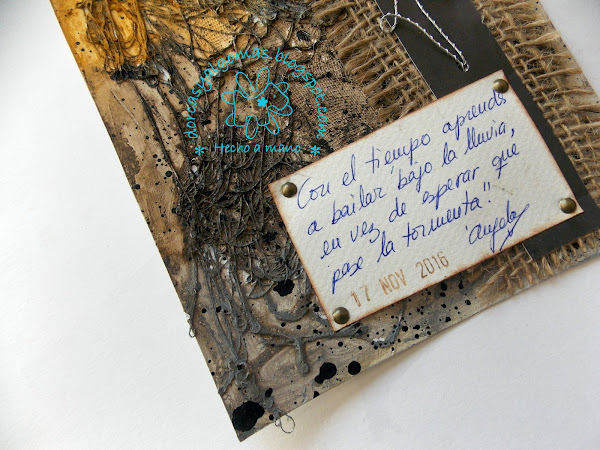 * Hecho a mano *
Con el tiempo aprendes
a bailar bajo la lluvia,
en vez de esperar que
pase la tormenta!!
17 NOV 2016